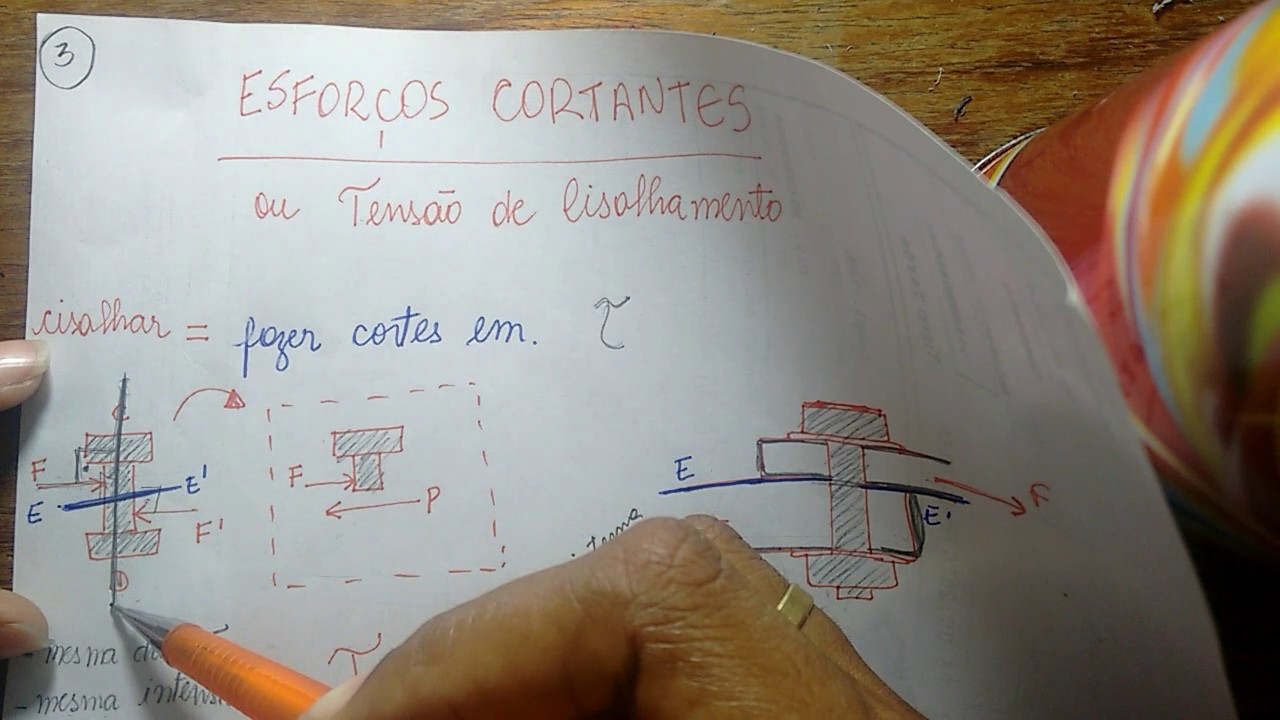 3
ESFORÇOS CORTANTES
ou Tensão de Cisalhamento
cisalhar = fazer cortes em. τ
C
F
E E'
F'
D
F
P
E
F
E'
- mesma
- mesma
τ